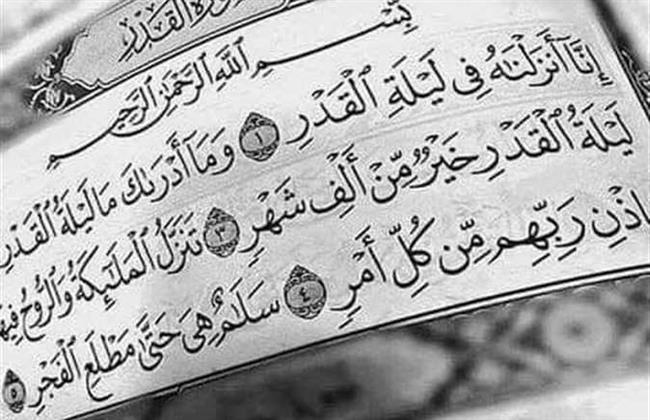 سورة القدر
بِسْمِ ٱللَّهِ ٱلرَّحْمَٰنِ ٱلرَّحِيمِ
إِنَّآ أَنزَلْنَٰهُ فِى لَيْلَةِ ٱلْقَدْرِ ١ وَمَآ أَدْرَىٰكَ مَا لَيْلَةُ ٱلْقَدْرِ
لَيْلَةُ ٱلْقَدْرِ خَيْرٌ مِّنْ أَلْفِ شَهْرٍ ٣ تَنَزَّلُ ٱلْمَلَٰٓئِكَةُ وَٱلرُّوحُ فِيهَا
بِإِذْنِ رَبِّهِم مِّن كُلِّ أَمْرٍ ٤ سَلَٰمٌ هِىَ حَتَّىٰ مَطْلَعِ ٱلْفَجْرِ ٥